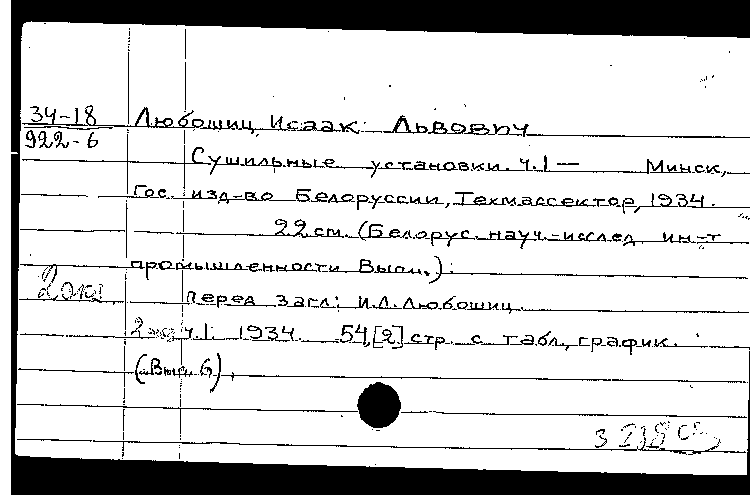 34-18
922-6
Любошиц, Исаак Львович
Сушильные установки. ч.1 — Минск,
Гос. изд-во Белоруссии, Техмассектор, 1934.
22 см. (Белорус. науч.-исслед. ин-т
промышленности. Вып. ):
2 экз.
Перед загл: И.Л. Любошиц.
2 экз ч.1. 1934. 54,[2] стр. с табл., график.
(Вып. 6).